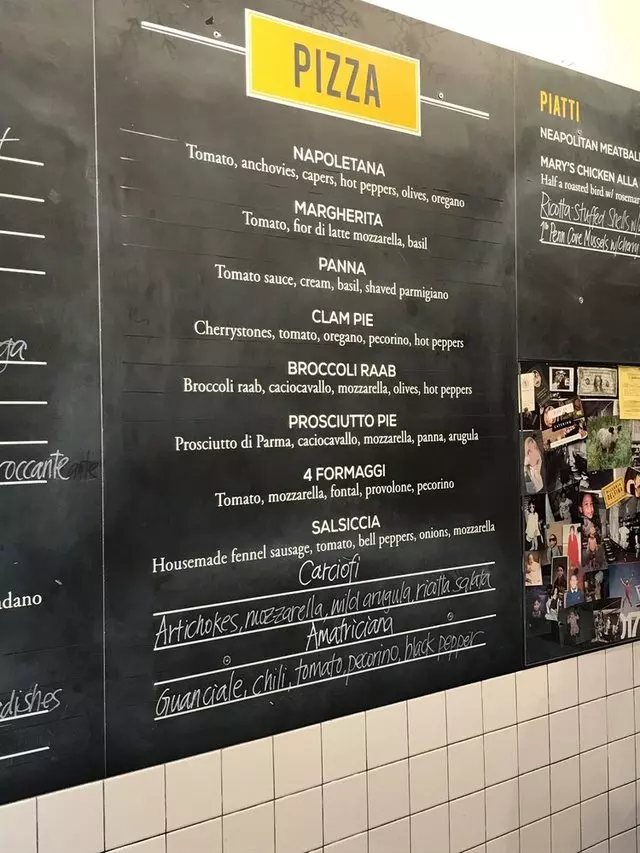 PIZZA
NAPOLETANA
Tomato, anchovies, capers, hot peppers, olives, oregano
MARGHERITA
Tomato, fior di latte mozzarella, basil
PANNA
Tomato sauce, cream, basil, shaved parmigiano
CLAM PIE
Cherrystones, tomato, oregano, pecorino, hot peppers
BROCCOLI RAAB
Broccoli raab, caciocavallo, mozzarella, olives, hot peppers
PROSCIUTTO PIE
Prosciutto di Parma, caciocavallo, mozzarella, panna, arugula
4 FORMAGGI
Tomato, mozzarella, fontal, provolone, pecorino
SALSICCIA
Housemade fennel sausage, tomato, bell peppers, onions, mozzarella
Carciofi
Artichokes, mozzarella, wild arugula, ricotta salata
Amatriciana
Guanciale, chili, tomato, pecorino, black pepper
PIATTI
NEAPOLITAN MEATBAL
MARY'S CHICKEN ALLA
Half a roasted bird w/ rosemar
Ricotta-Stuffed Shells w/
Penn Cove Mussels w/cherry
roccante
dano
dishes